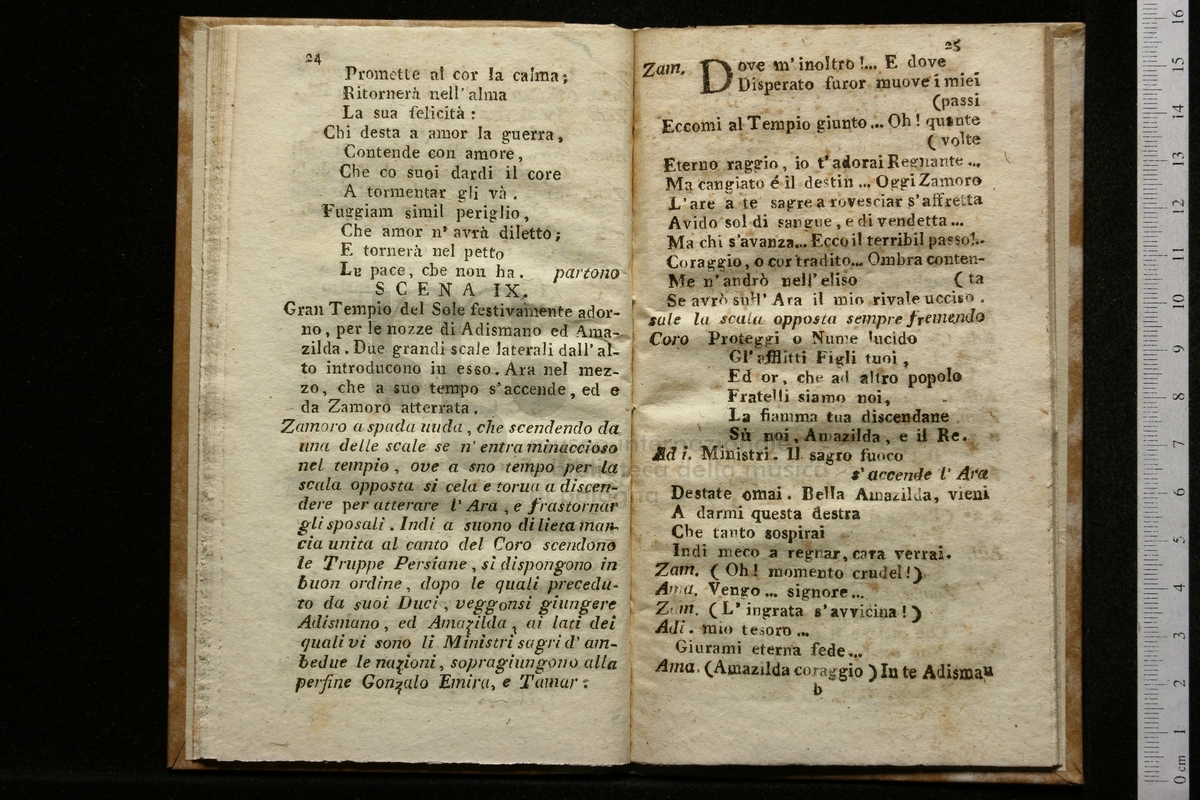 24
Promette al cor la calma;
Ritornerà nell'alma
La sua felicità:
Chi desta a amor la guerra,
Contende con amore,
Che co suoi dardi il core
A tormentar gli và.
Fuggiam simil periglio,
Che amor n'avrà diletto;
E tornerà nel petto
La pace, che non ha. partono
SCENA IX.
Gran Tempio del Sole festivamente ador-
no, per le nozze di Adismano ed Ama-
zilda. Due grandi scale laterali dall'al-
to introducono in esso. Ara nel mez-
zo, che a suo tempo s'accende, ed e
da Zamoro atterrata.
Zamoro a spada uuda, che scendendo da
una delle scale se n'entra minaccioso
nel tempio, ove a sno tempo per la
scala opposta si cela e torua a discen-
dere per atterare l'Ara, e frastornar
gli sposali. Indi a suono di lieta mar-
cia unita al canto del Coro scendono
le Truppe Persiane, si dispongono in
buon ordine, dopo le quali precedu-
to da suoi Duci, veggonsi giungere
Adismano, ed Amazilda, ai lati dei
quali vi sono li Ministri sagri d'am-
bedue le nazioni, sopragiungono alla
perfine Gonzalo Emira, e Tamar:
25
Zam. Dove m'inoltro!... E dove
Disperato furor muove i miei
(passi
Eccomi al Tempio giunto... Oh! quante
(volte
Eterno raggio, io t'adorai Regnante...
Ma cangiato é il destin... Oggi Zamoro
L'are a te sagre a rovesciar s'affretta
Avido sol di sangue, e di vendetta...
Ma chi s'avanza... Ecco il terribil passo!..
Coraggio, o cor tradito... Ombra conten-
Me n'andrò nell'eliso (ta
Se avrò sull'Ara il mio rivale ucciso.
sale la scala opposta sempre fremendo
Coro Proteggi o Nume lucido
Gl'afflitti Figli tuoi,
Ed or, che ad altro popolo
Fratelli siamo noi,
La fiamma tua discendane
Sù noi, Amazilda, e il Re.
Adi. Ministri. Il sagro fuoco
s'accende l'Ara
Destate omai. Bella Amazilda, vieni
A darmi questa destra
Che tanto sospirai
Indi meco a regnar, cara verrai.
Zam. (Oh! momento crudel!)
Ama. Vengo... signore...
Zam. (L'ingrata s'avvicina!)
Adi. mio tesoro...
Giurami eterna fede...
Ama. (Amazilda coraggio) In te Adisman
b